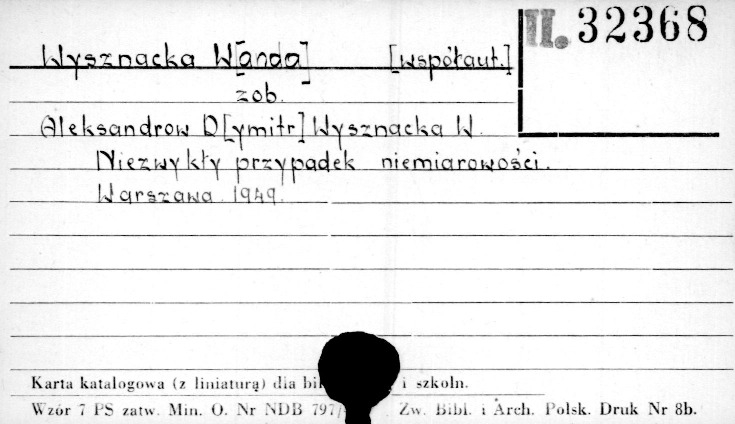 II. 32368
Wysznacka W[anda] [współaut.]
zob.
Aleksandrow D[ymitr] Wysznacka W.
Niezwykły przypadek niemiarowości.
Warszawa 1949.
Karta katalogowa (z liniaturą) dla i szkoln.
Wzór 7 PS zatw. Min. O. Nr NDB 797/ Zw. Bibl. i Arch. Polsk. Druk Nr 8b.